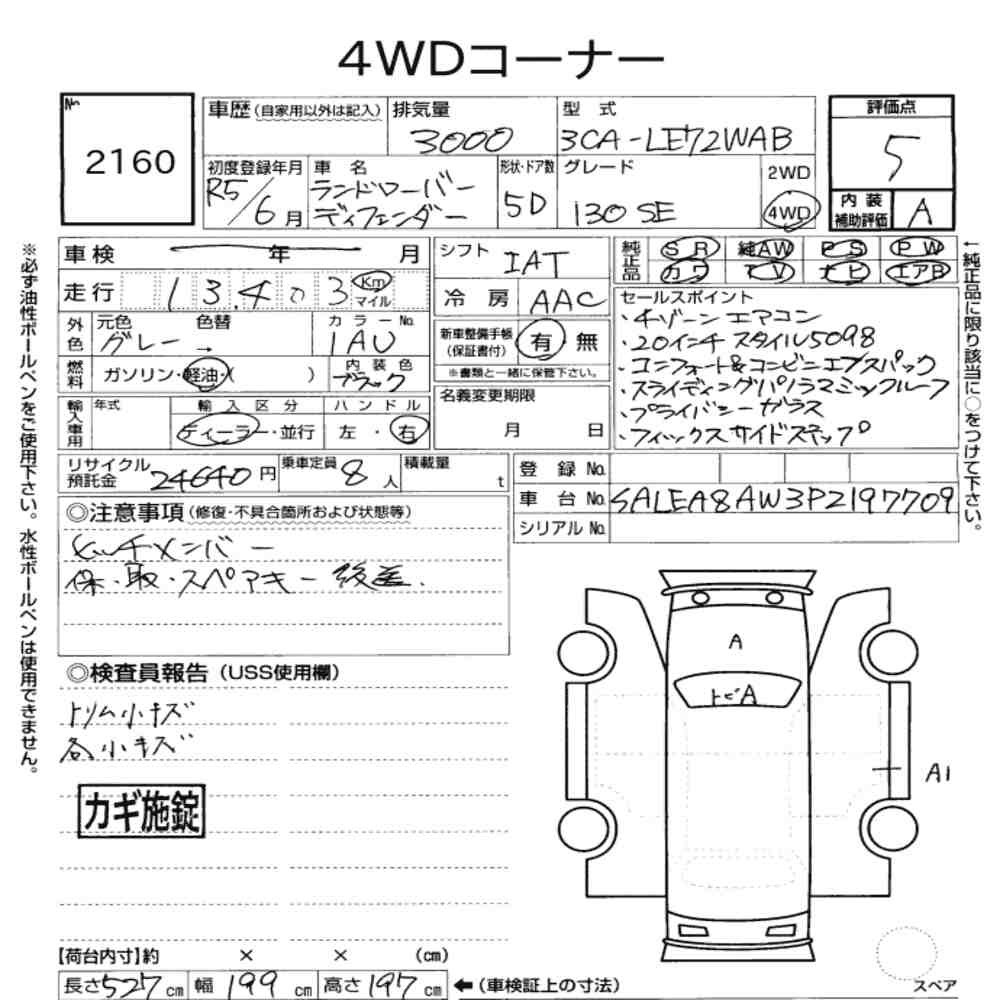 4WDコーナー
№
2160
車歴(自家用以外は記入)
排気量
3000
型 式
3CA-LE72WAB
評価点
5
内装補助評価
A
初度登録年月
R5/6月
車 名
ランドローバー
ディフェンダー
形状・ドア数
5D
グレード
130 SE
2WD
4WD
車検
年 月
走行
13,403
Km
マイル
外色
元色 色替
グレー →
カラーNo.
1AU
燃料
ガソリン・軽油・( )
内装色
ブラック
輸入車用
年式
輸入区分
ディーラー・並行
ハンドル
左・右
シフト
IAT
冷房
AAC
新車整備手帳
(保証書付)
有 無
※書類と一緒に保管下さい。
名義変更期限
月 日
純正品
SR 純AW PS PW
カワ TV ナビ エアB
セールスポイント
・4ゾーンエアコン
・20インチ スタイル5098
・コンフォート&コンビニエンスパック
・スライディングパノラミックルーフ
・プライバシーガラス
・フィックスサイドステップ
リサイクル預託金
24640円
乗車定員
8人
積載量
t
登録No.
車台No.
SALEA8AW3P2197709
シリアルNo.
※必ず油性ボールペンをご使用下さい。水性ボールペンは使用できません。
←純正品に限り該当に○をつけて下さい。
◎注意事項(修復・不具合箇所および状態等)
ヒッチメンバー
保・取・スペアキー 後送.
◎検査員報告(USS使用欄)
トリム小キズ
各小キズ
カギ施錠
A
トビA
A1
【荷台内寸】約 × × (cm)
長さ527cm 幅199cm 高さ197cm
←(車検証上の寸法)
スペア